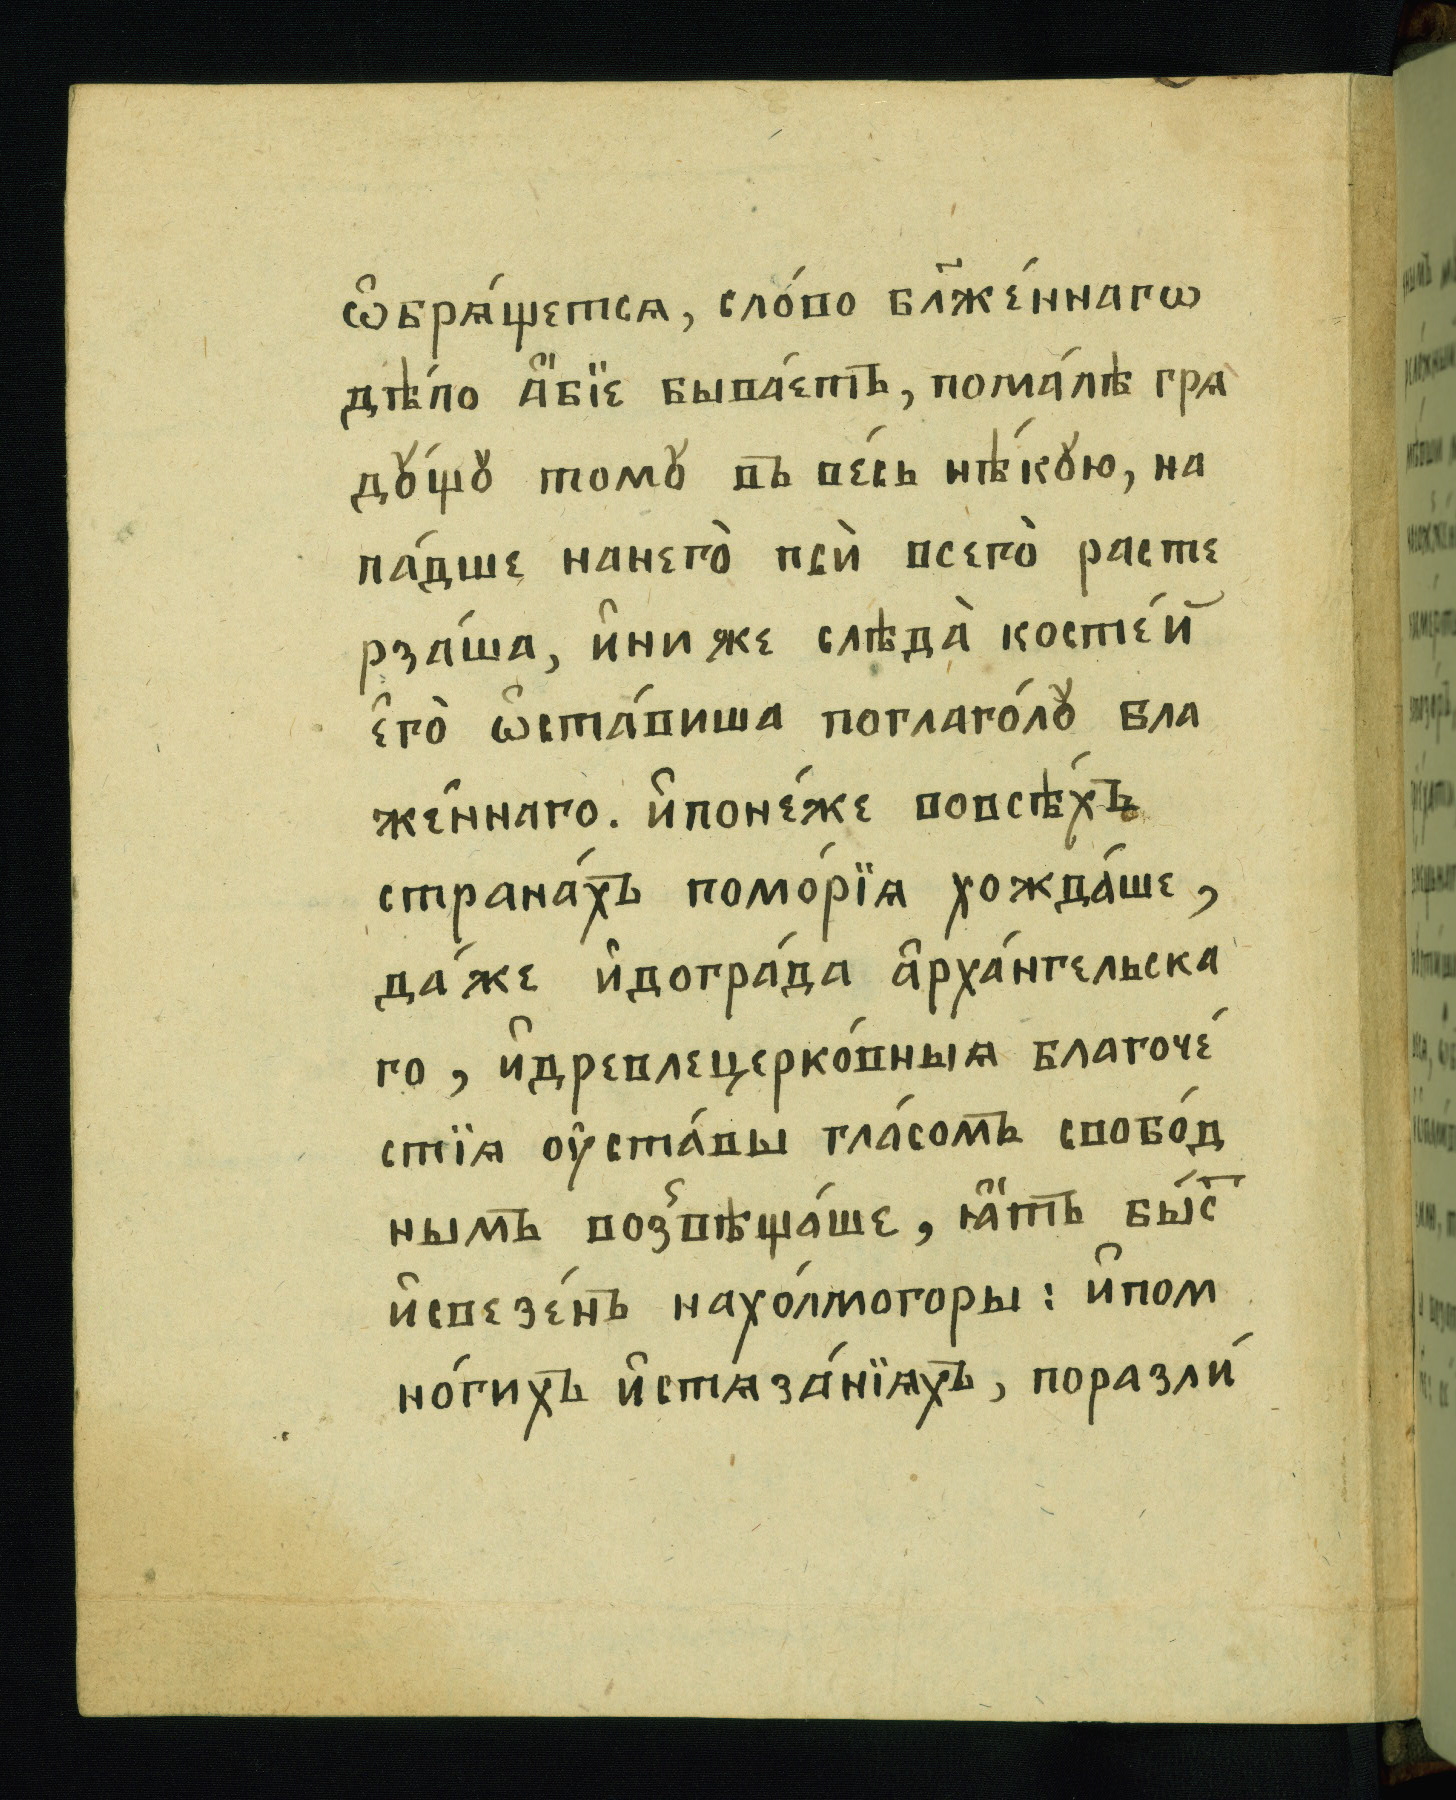 ѡ҆брѧ́щетсѧ, сло́во бл҃же́ннагѡ
дѣ́ло а҆́бїе быва́етъ, пома́лѣ грѧ
дꙋ́щꙋ томꙋ въ ве́сь нѣ́кꙋю, на
па́дше нанего̀ пси̇̀ всего̀ расте
рза́ша, и҆ниже слѣда̀ косте́й
є҆го̀ ѡ҆ста́виша поглаго́лꙋ бла
же́ннаго. и҆поне́же вовсѣ́хъ
страна́хъ помо́рїѧ хожда́ше,
да́же и҆догра́да а҆рха́нгельска
го, и҆древлецерко́вныѧ благоче́
стїѧ оу҆ста́вы гла́сомъ свобо́д
нымъ воз̾вѣща́ше, ꙗ҆́тъ бы́с̑
и҆свезе́нъ нахо́лмогоры: и҆пом
но́гихъ и҆стѧза́нїѧхъ, поразли́